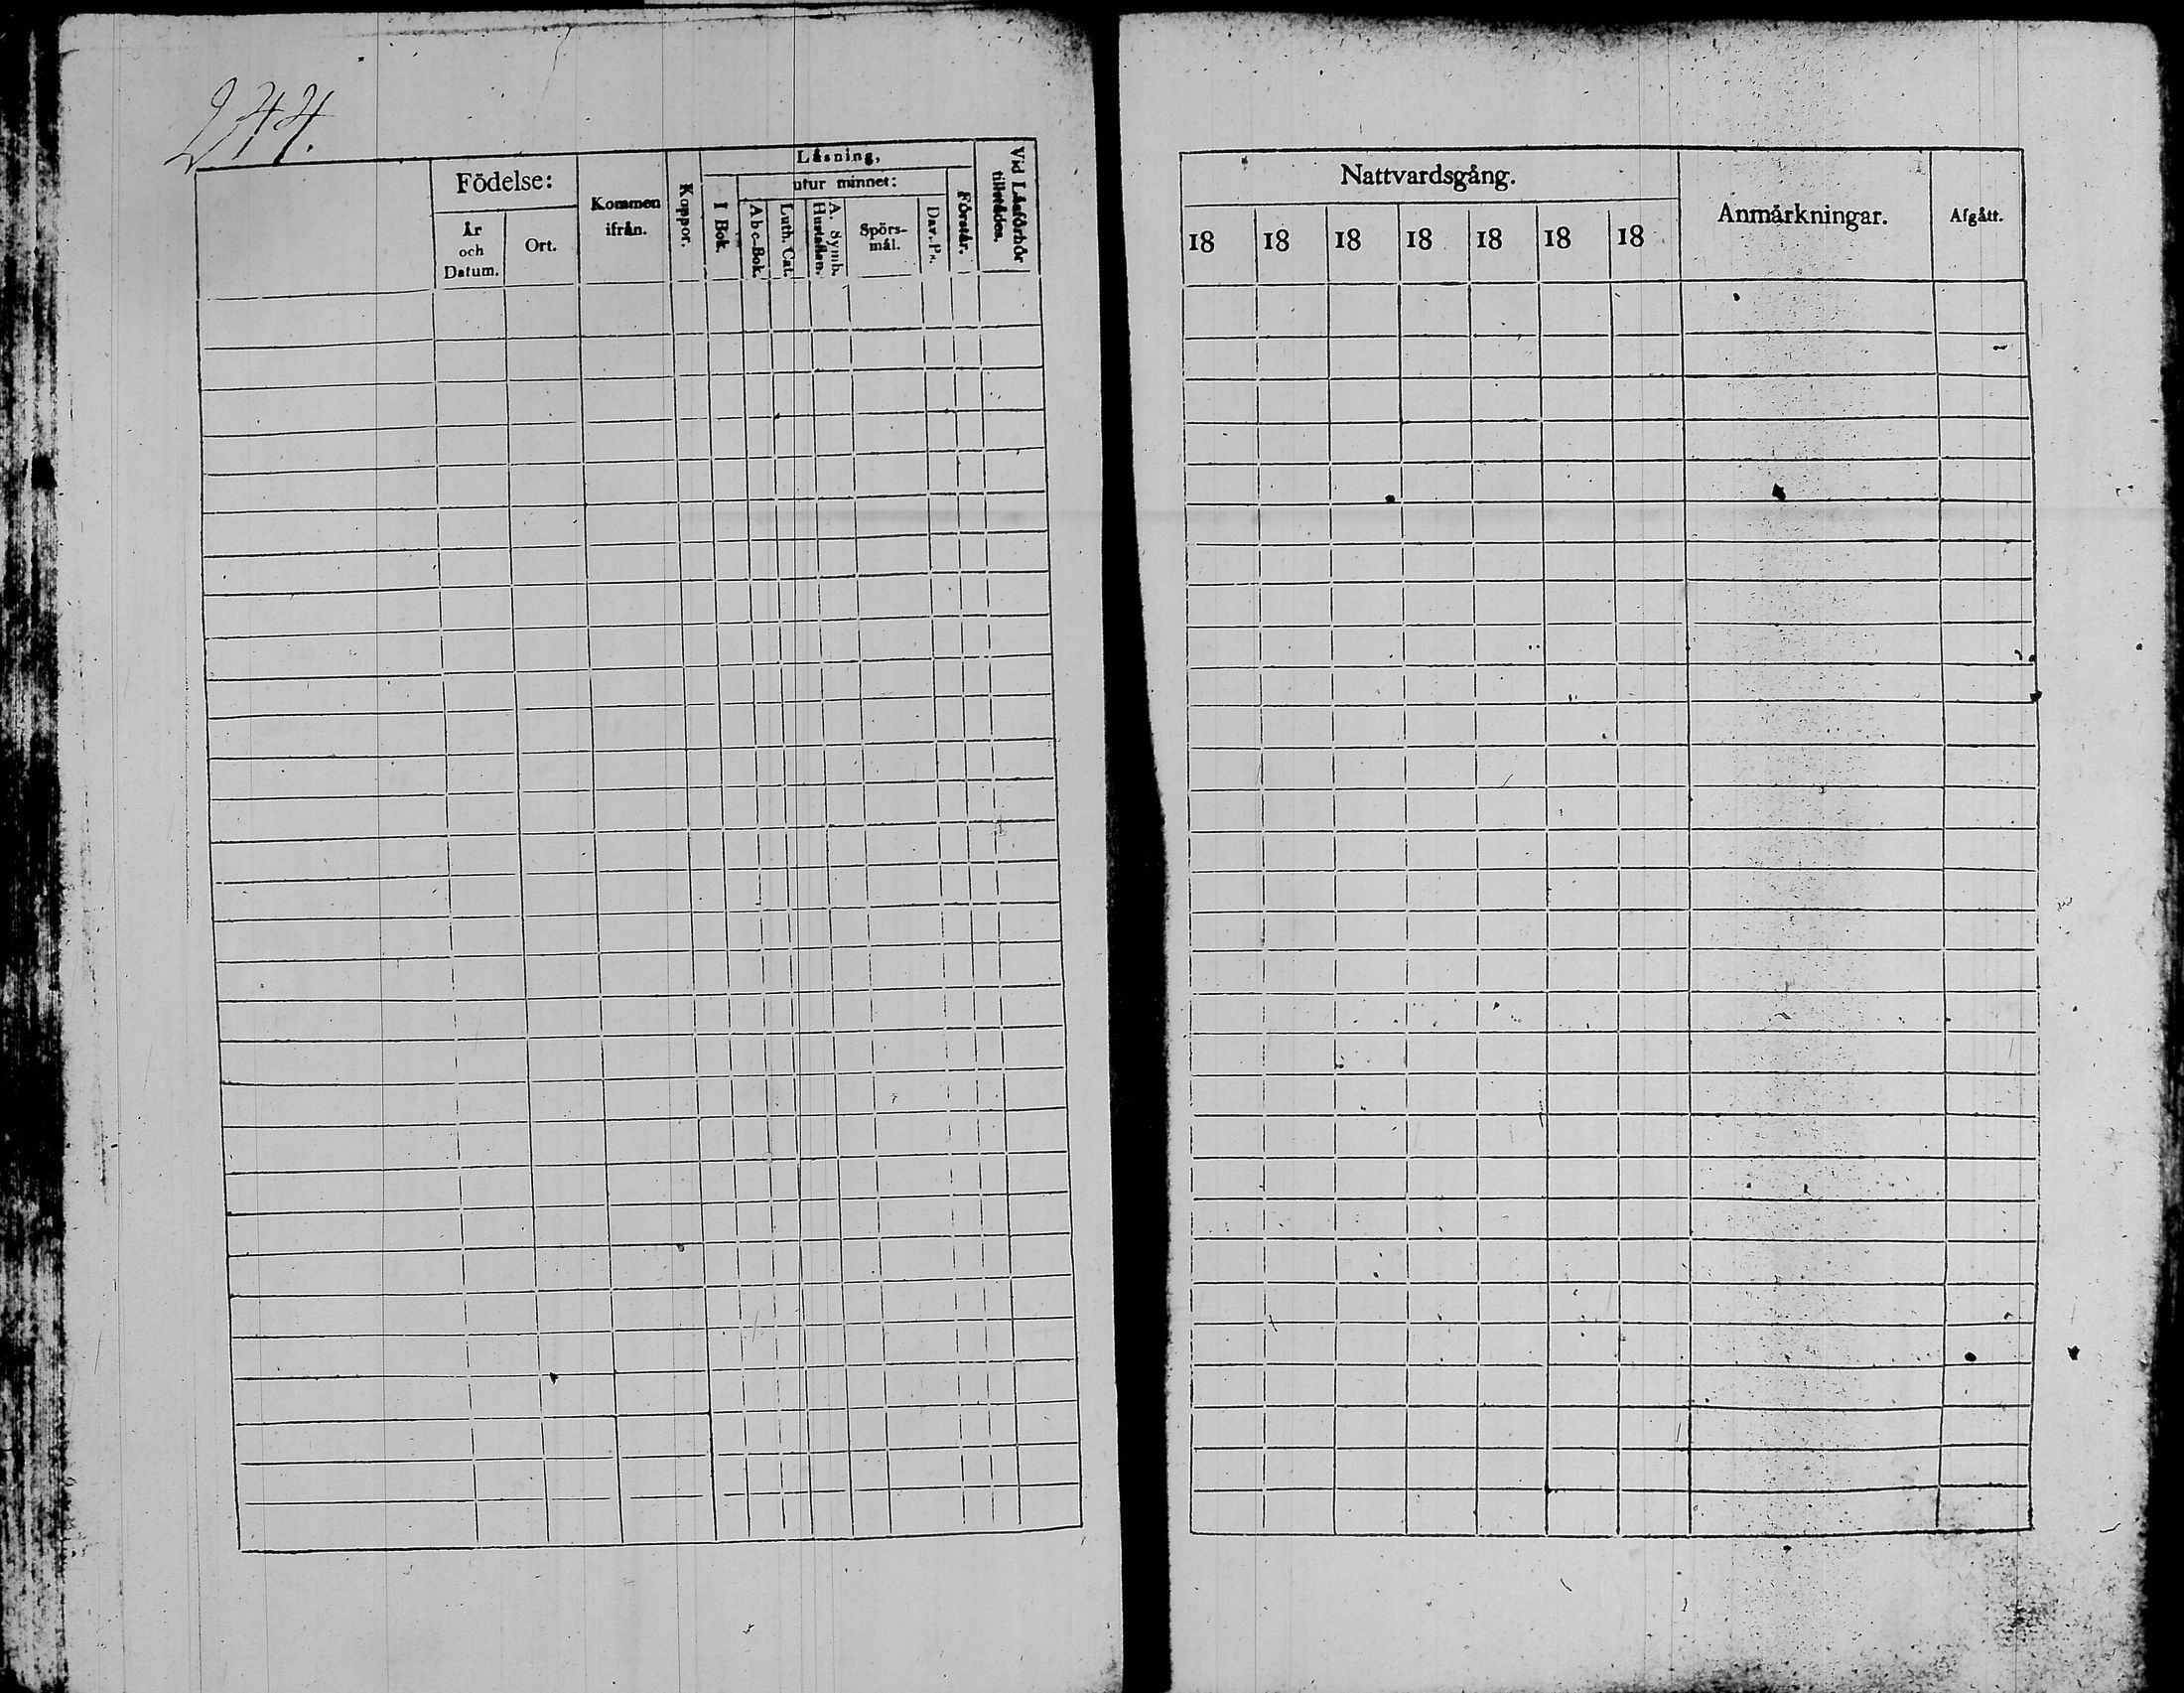 244.
Läsning,
Födelse:
Kommen
ifrån.
Koppor.
utur minnet:
Förstår.
Vid Läsförhör
tillstädes.
År
och
Datum.
Ort.
I Bok.
Abc-Bok.
Luth. Cat.
A. Symb.
Hustaflan.
Spörs-
mål.
Dav. Ps.
Nattvardsgång.
Anmärkningar.
Afgått.
18 18 18 18 18 18 18